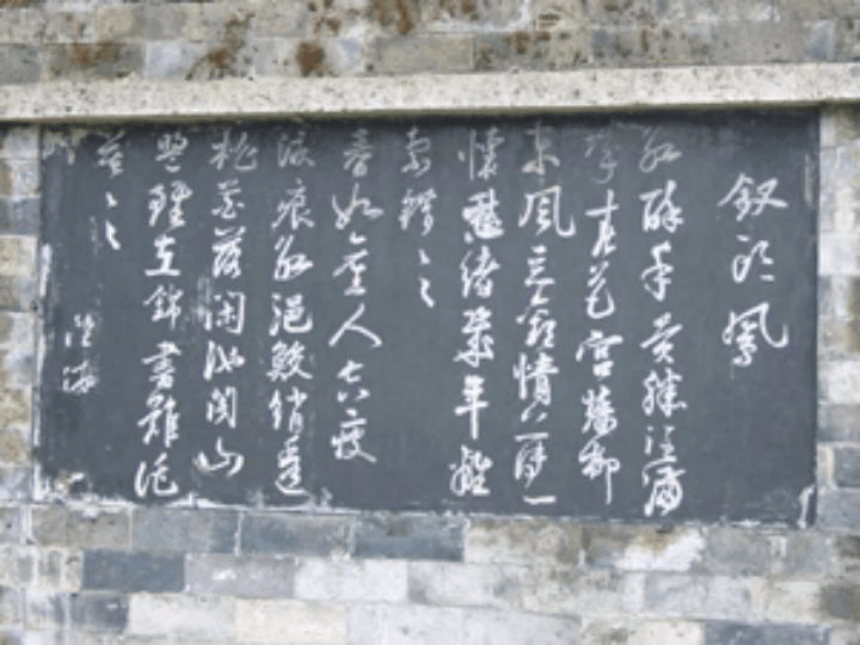 釵头鳳
紅酥手黃縢酒滿
城春色宮牆柳
東風惡歡情薄一
懷愁緒幾年離
索錯々々
春如舊人空瘦
淚痕紅浥鮫綃透
桃花落閑池閣山
盟雖在錦書難託
莫々々
陸游